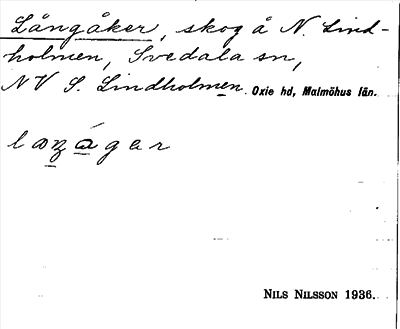 Långåker, skog å N. Lind-
holmen, Svedala sn,
NV S. Lindholmen. Oxie hd, Malmöhus län.
NILS NILSSON 1936.